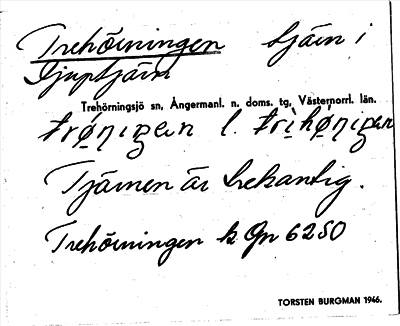 Trehörningen tjärn i
Djuptjärn
Trehörningsjö sn, Ångermanl. n. doms. tg, Västernorrl. län.
trø̣ṇiŋẹn l. trihø̣ṇiŋẹn
Tjärnen är trekantig.
Trehörningen k Gn 6250
TORSTEN BURGMAN 1946.